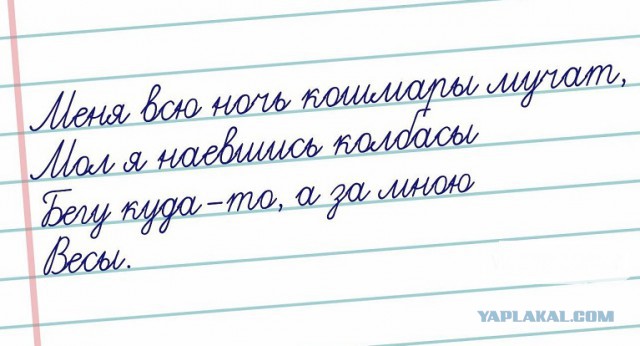 Меня всю ночь кошмары мучат,
Мол я наевшись колбасы
Бегу куда-то, а за мною
Весы.
YAPLAKAL.COM